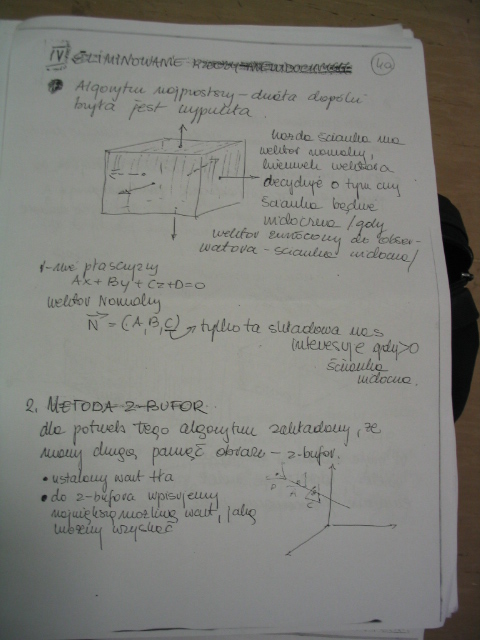 IV ELIMINOWANIE
4a
Algorytm najprostszy - działa dopóki
bryła jest wypukła.
każda ścianka ma
wektor normalny,
kierunek wektora
decyduje o tym czy
ścianka będzie
widoczna /gdy
wektor zwrócony do obser-
watora - ścianka widoczna/
r-nie płaszczyzny
Ax + By + Cz + D = 0
wektor Normalny
N = (A, B, C) → tylko ta składowa nas
interesuje gdy >0
ścianka
widoczna.
2. METODA Z-BUFOR
dla potrzeb tego algorytmu zakładamy, że
mamy drugą pamięć obrazu - z-bufor.
• ustalamy wart tła
• do z-bufora wpisujemy
największą możliwą wart, jaką
możemy uzyskać